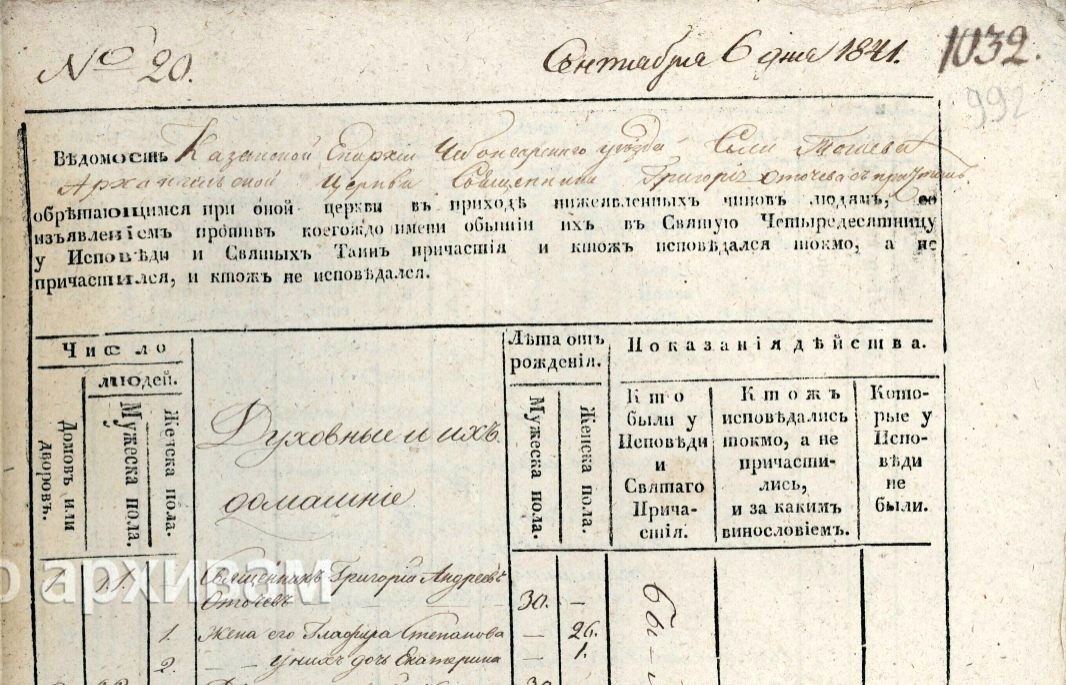 № 20.
Сентября 6 дня 1841.
1032.
992
Вѣдомость Казанской Епархіи Чебоксарскаго уѣзда Села
Архангельской Церкви Священника Григорія съ причтомъ
обрѣтающимся при оной церкви въ приходѣ нижеявленныхъ чиновъ людямъ, со
изъявленіемъ противъ коегождо имени бытіи ихъ въ Святую Четыредесятницу
у Исповѣди и Святыхъ Таинъ причастія и ктожъ исповѣдался токмо, а не
причастился, и ктожъ не исповѣдался.
Число
людей.
Домовъ или дворовъ.
Мужеска пола.
Женска пола.
Духовные и ихъ
домашніе
Лѣта отъ
рожденія.
Мужеска пола.
Женска пола.
Показанія дѣйства.
Кто
были у
Исповѣди
и
Святаго
Прича-
стія.
Ктожъ
исповѣдались
токмо, а не
причасти-
лись,
и за какимъ
винословіемъ.
Кото-
рые у
Испо-
вѣди
не
были.
1 1. — Священникъ Григорій Андреевъ
— — — 30. —
1. Жена его Глафира Степанова — 26.
2. — — У нихъ дочь Екатерина — 1.
бы —
о архивам